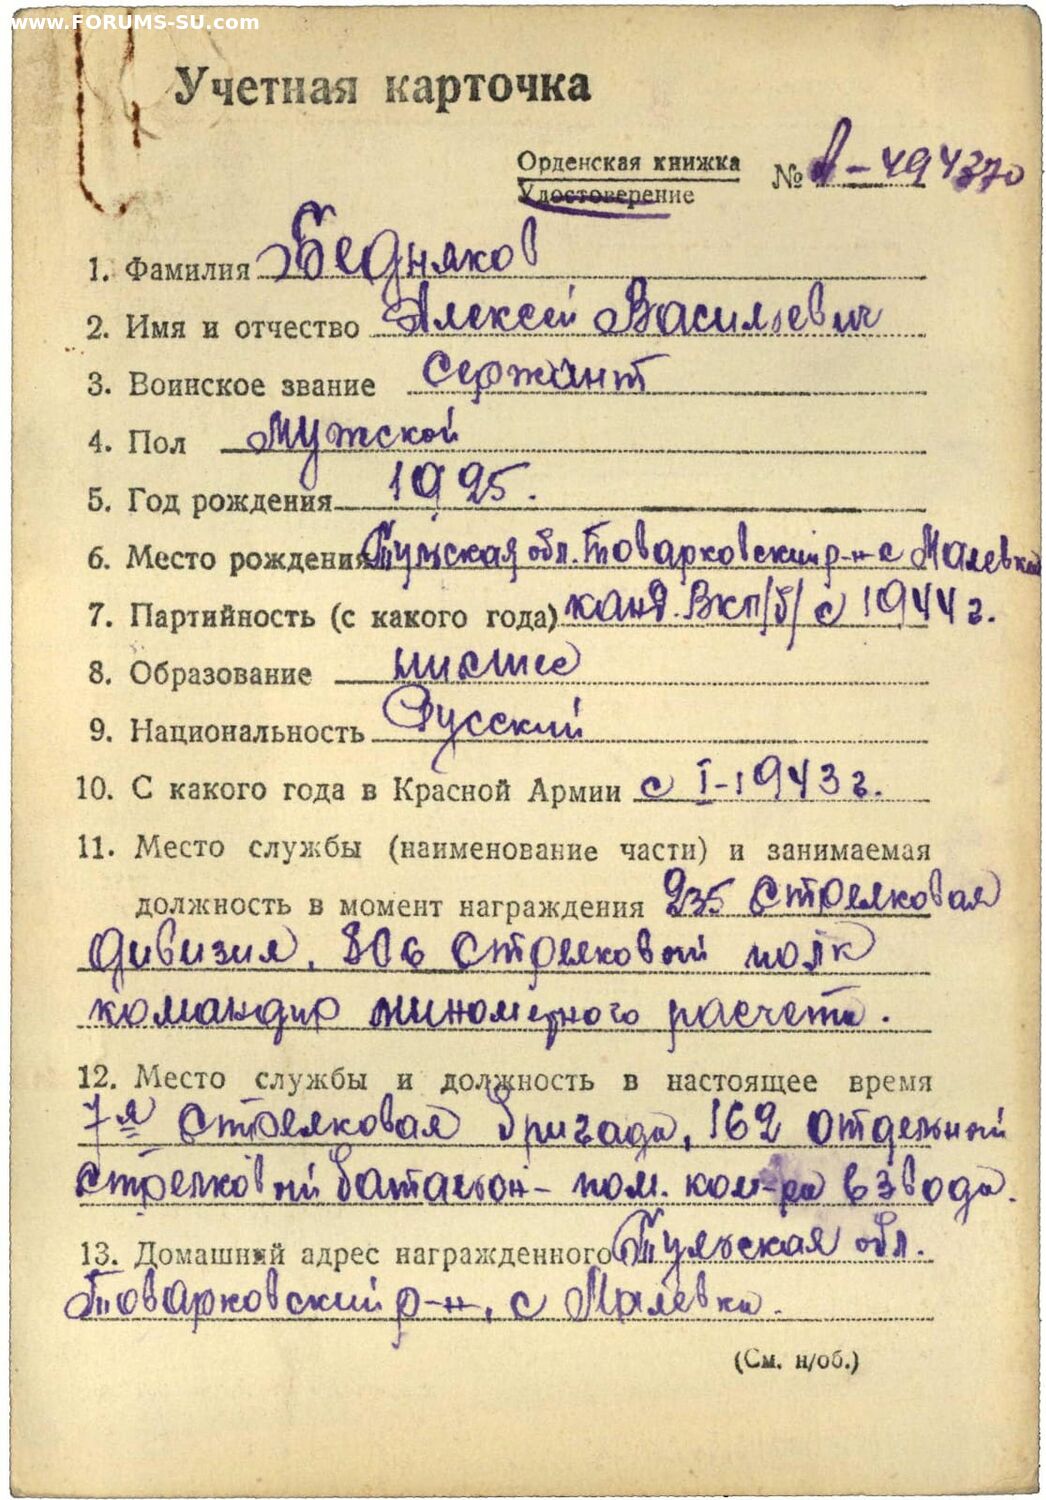 www.FORUMS-SU.com
Учетная карточка
Орденская книжка
Удостоверение
№ В-494370
1. Фамилия Бедняков
2. Имя и отчество Алексей Васильевич
3. Воинское звание Сержант
4. Пол Мужской
5. Год рождения 1925.
6. Место рождения Тульская обл. Товарковский р-н с Малевка
7. Партийность (с какого года) канд. Вкп/б/ с 1944 г.
8. Образование низшее
9. Национальность Русский
10. С какого года в Красной Армии с I-1943 г.
11. Место службы (наименование части) и занимаемая
должность в момент награждения 235 Стрелковая
дивизия, 806 Стрелковой полк
командир минометного расчета.
12. Место службы и должность в настоящее время
7я Стрелковая бригада, 162 отдельной
стрелковый батальон - пом. ком-ра взвода.
13. Домашний адрес награжденного Тульская обл.
Товарковский р-н, с Малевка.
(См. н/об.)